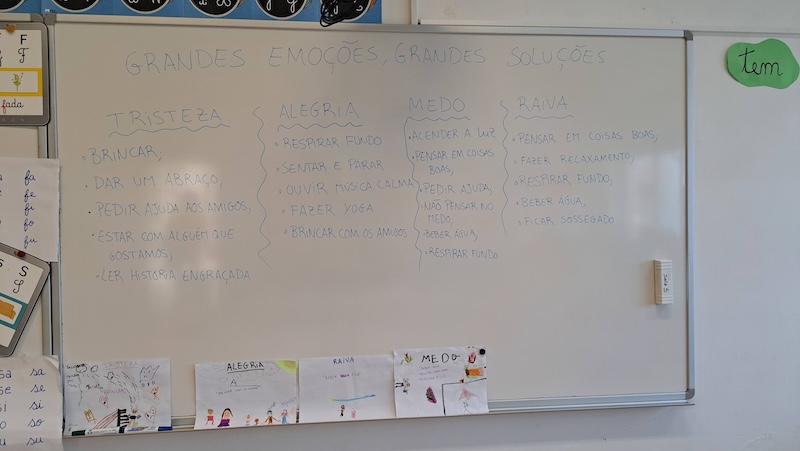 GRANDES EMOÇÕES, GRANDES SOLUÇÕES
TRISTEZA
• BRINCAR,
• DAR UM ABRAÇO,
• PEDIR AJUDA AOS AMIGOS,
• ESTAR COM ALGUÉM QUE
GOSTAMOS,
• LER HISTÓRIA ENGRAÇADA
ALEGRIA
• RESPIRAR FUNDO
• SENTAR E PARAR
• OUVIR MÚSICA CALMA
• FAZER YOGA
• BRINCAR COM OS AMIGOS
MEDO
• ACENDER A LUZ
• PENSAR EM COISAS
BOAS,
• PEDIR AJUDA,
• NÃO PENSAR NO
MEDO,
• BEBER ÁGUA,
• RESPIRAR FUNDO
RAIVA
• PENSAR EM COISAS BOAS,
• FAZER RELAXAMENTO,
• RESPIRAR FUNDO,
• BEBER ÁGUA,
• FICAR SOSSEGADO
tem
F
fada
fa
fe
fi
fo
fu
S
sa
se
si
so
su
TRISTEZA
ALEGRIA
RAIVA
MEDO